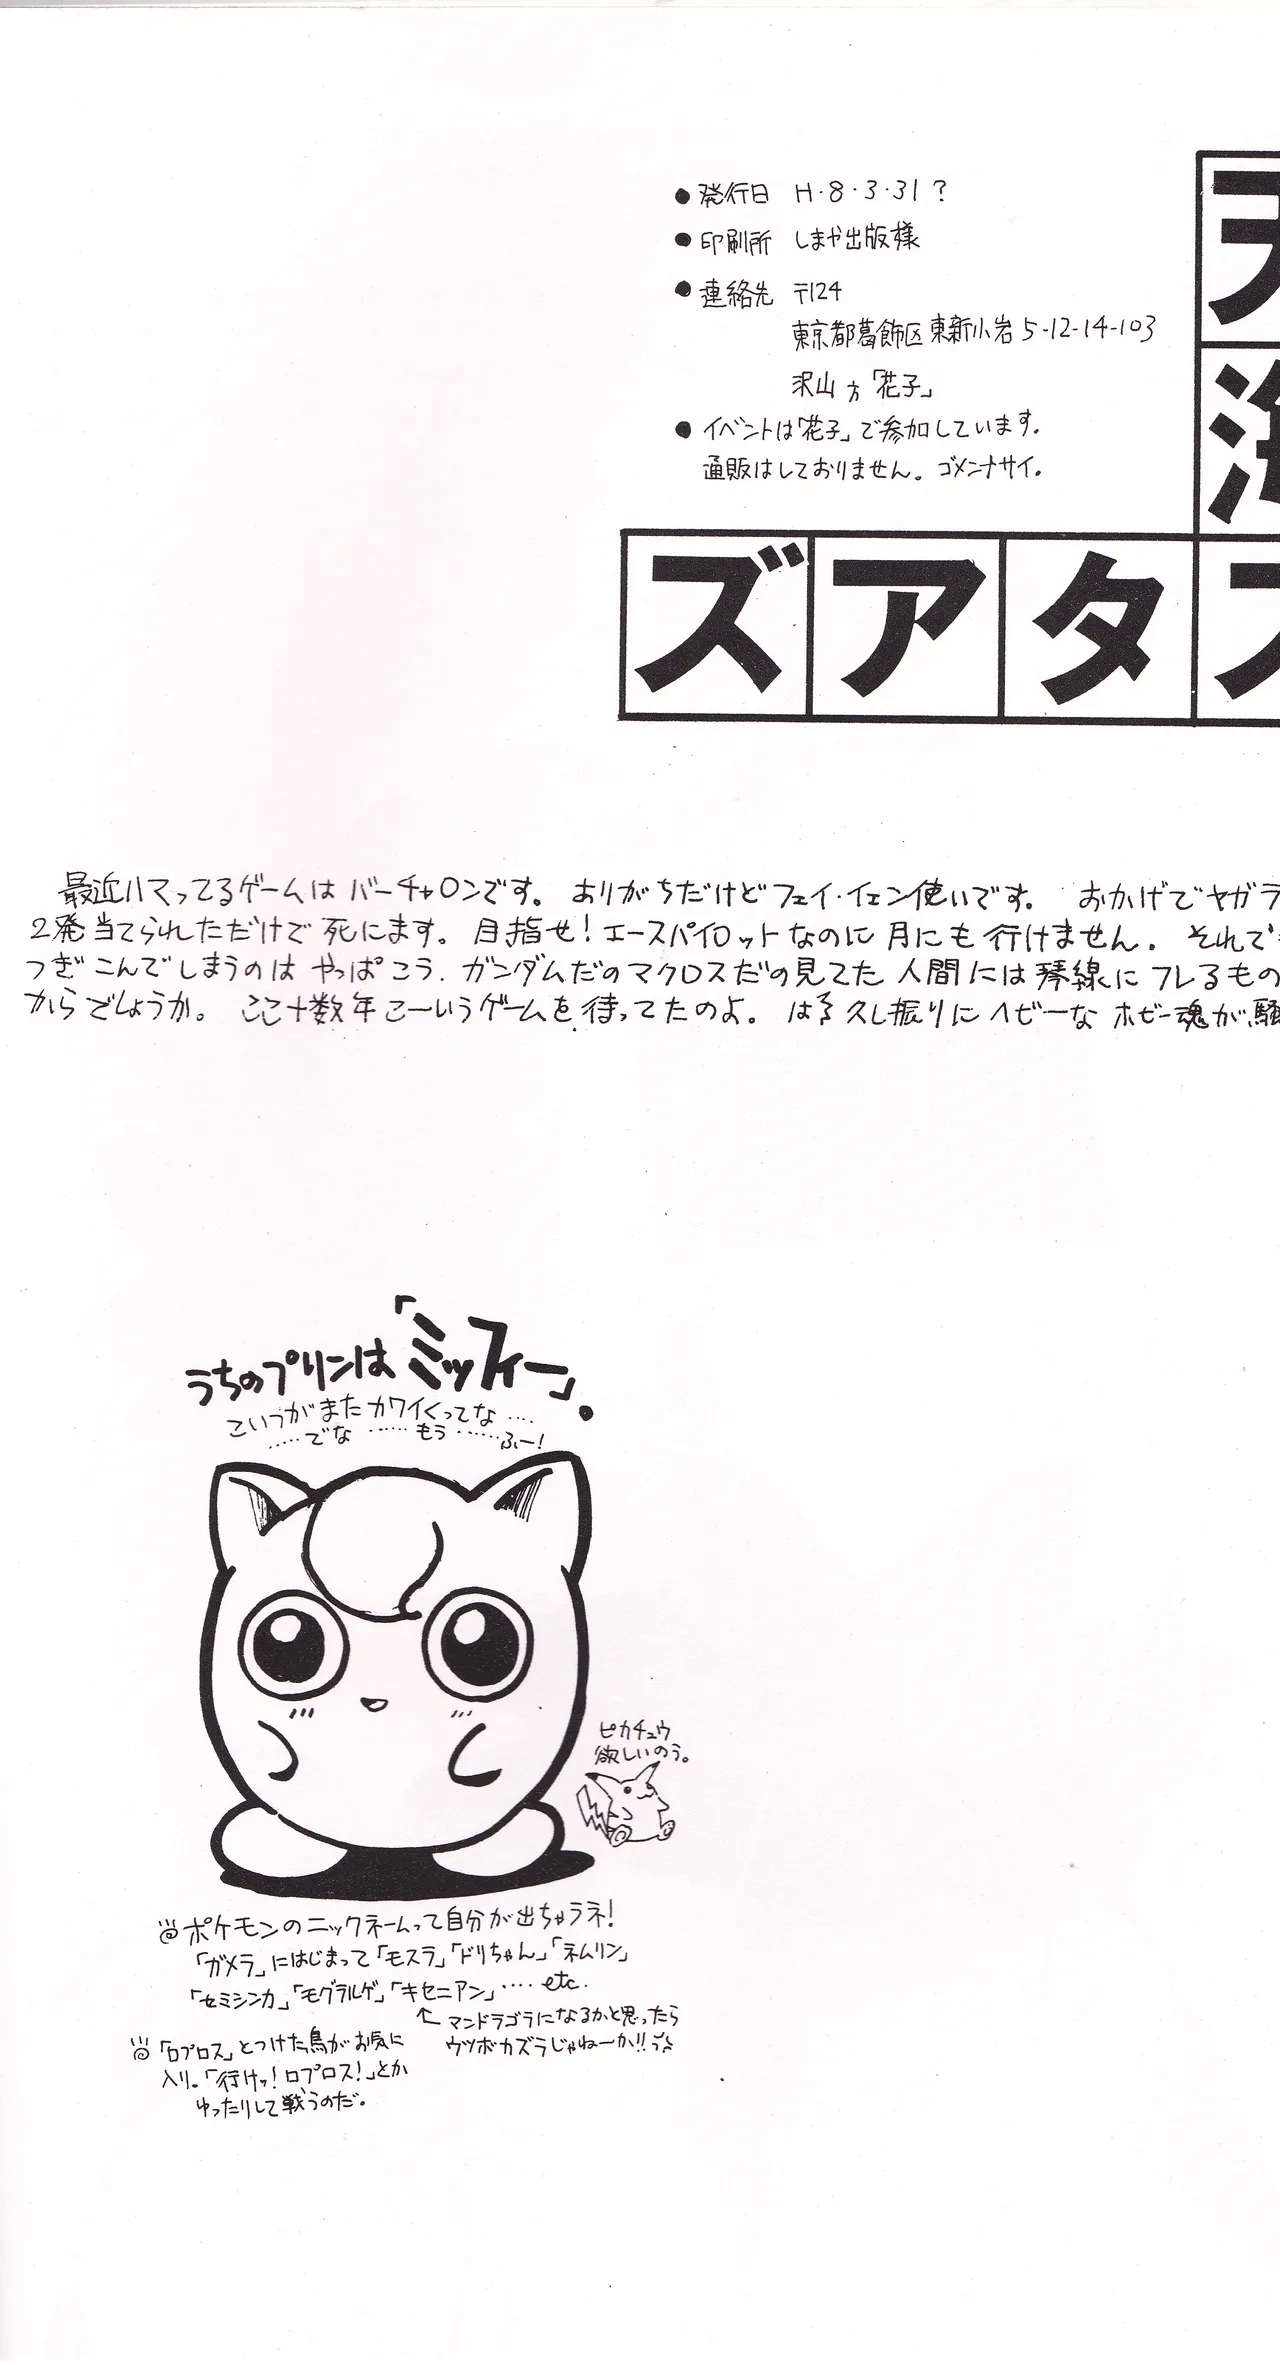 ●発行日 H・8・3・31?
●印刷所 しまや出版様
●連絡先 〒124
東京都葛飾区東新小岩5-12-14-103
沢山方「花子」
●イベントは「花子」で参加しています。
通販はしておりません。ゴメンナサイ。
天
海
ズアタス
最近ハマってるゲームはバーチャロンです。ありがちだけどフェイ・イェン使いです。おかげでヤガラ
2発当てられただけで死にます。目指せ!エースパイロットなのに月にも行けません。それで
つぎこんでしまうのはやっぱこう、ガンダムだのマクロスだの見てた人間には琴線にフレるもの
からでしょうか。ここ十数年こーいうゲームを待ってたのよ。はう久し振りにヘビーなホビー魂が騒
うちのプリンは「ミッフィー」。
こいつがまたカワイくってな……
……でな……もう……ふー!
ピカチュウ
欲しいのう。
ポケモンのニックネームって自分が出ちゃうネ!
「ガメラ」にはじまって「モスラ」「ドリちゃん」「ネムリン」
「セミシンカ」「モグラルゲ」「キセニアン」……etc.
↑マンドラゴラになるかと思ったら
ウツボカズラじゃねーか!!
「ロプロス」とつけた鳥がお気に
入り。「行けッ!ロプロス!」とか
ゆったりして戦うのだ。